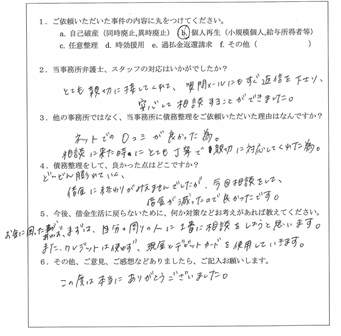 1．ご依頼いただいた事件の内容に丸をつけてください。
a. 自己破産（同時廃止,異時廃止） b. 個人再生（小規模個人,給与所得者等）
c. 任意整理 d. 時効援用 e. 過払金返還請求 f. その他（
2．当事務所弁護士、スタッフの対応はいかがでしたか？
とても親切に接してくれ、質問メールにもすぐ返信を下さり、
安心して相談することができました。
3．他の事務所ではなく、当事務所に債務整理をご依頼いただいた理由はなんですか？
ネットでの口コミが良かった為。
相談に来た時にとても丁寧で親切に対応してくれた為。
4．債務整理をして、良かった点はどこですか？
どーどん膨られていた、
借金に終わりがみえませんでしたが、今回相談をして、
借金が減ったので良かったです。
5．今後、借金生活に戻らないために、何か対策などお考えがあれば教えてください。
お金に困った事があれば、まずは、自分の周りの人に1番に相談をしようと思います。
また、クレジットは使わず、現金とデビットカードを使用していきます。
6．その他、ご意見、ご感想などありましたら、ご記入お願いします。
この度は本当にありがとうございました。